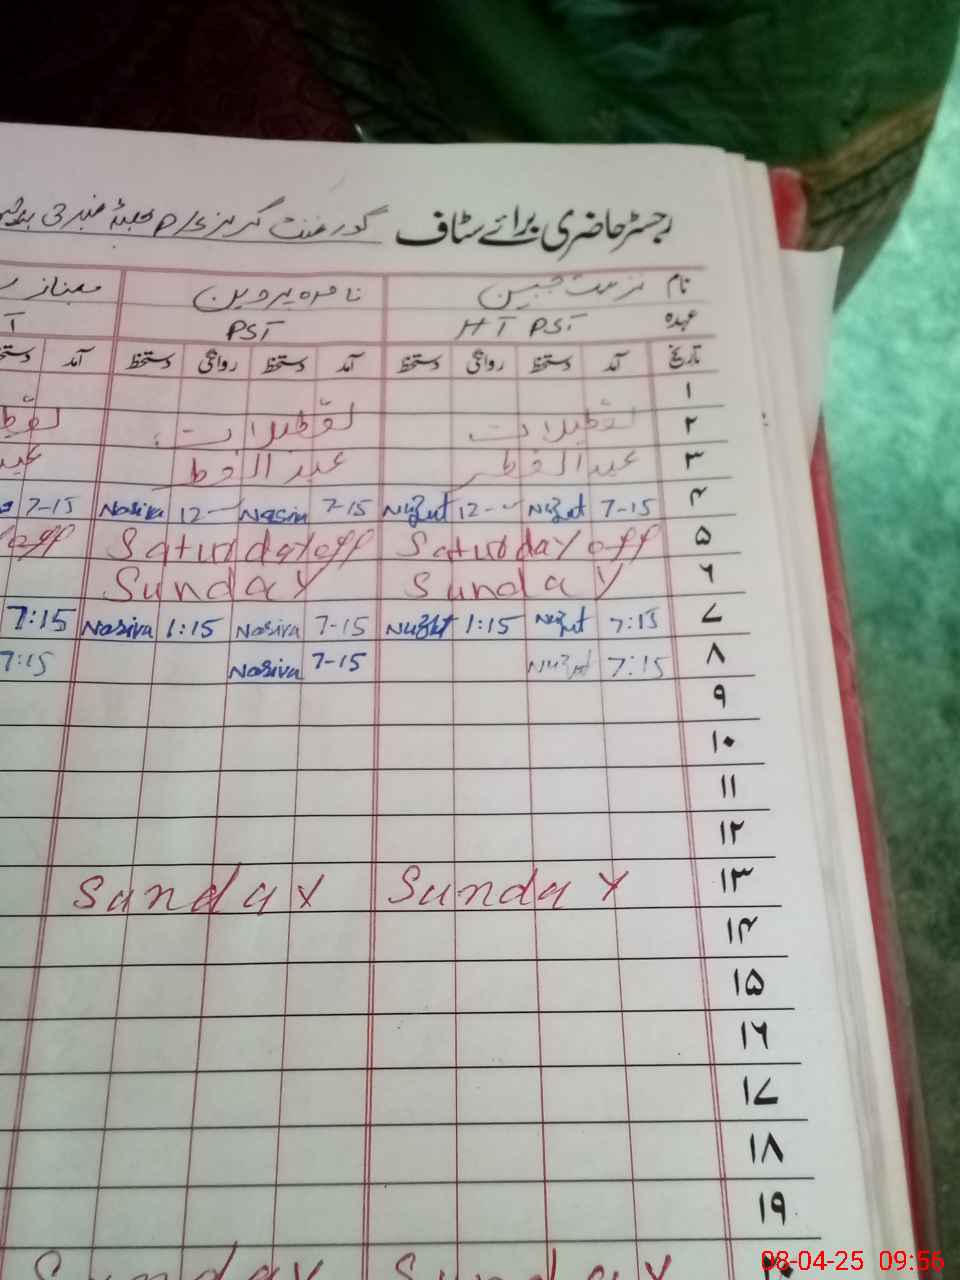 رجسٹر حاضری برائے سٹاف گورنمنٹ گرلز P/S نمبر 3
نام نزہت جبین ناصرہ پروین
عہدہ HT PST PST
تاریخ آمد دستخط روانگی دستخط آمد دستخط روانگی دستخط آمد
۱
۲ تعطیلات تعطیلات
۳ عید الفطر عید الفطر
۴ 7-15 Nuzhat 12- Nuzhat 7-15 Nasira 12- Nasira 7-15
۵ Saturday off Saturday off off
۶ Sunday Sunday
۷ 7:15 Nuzhat 1:15 Nuzhat 7-15 Nasira 1:15 Nasira 7:15
۸ 7:15 Nuzhat 7-15 Nasira 7:15
۹
۱۰
۱۱
۱۲
۱۳ Sunday Sunday
۱۴
۱۵
۱۶
۱۷
۱۸
۱۹
۲۰ Sunday Sunday
08-04-25 09:56